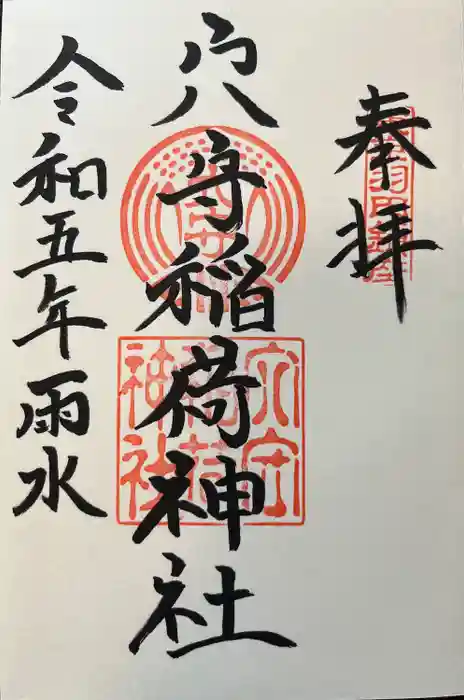 奉拝
穴守稲荷神社
令和五年雨水
穴守
稲荷
神社